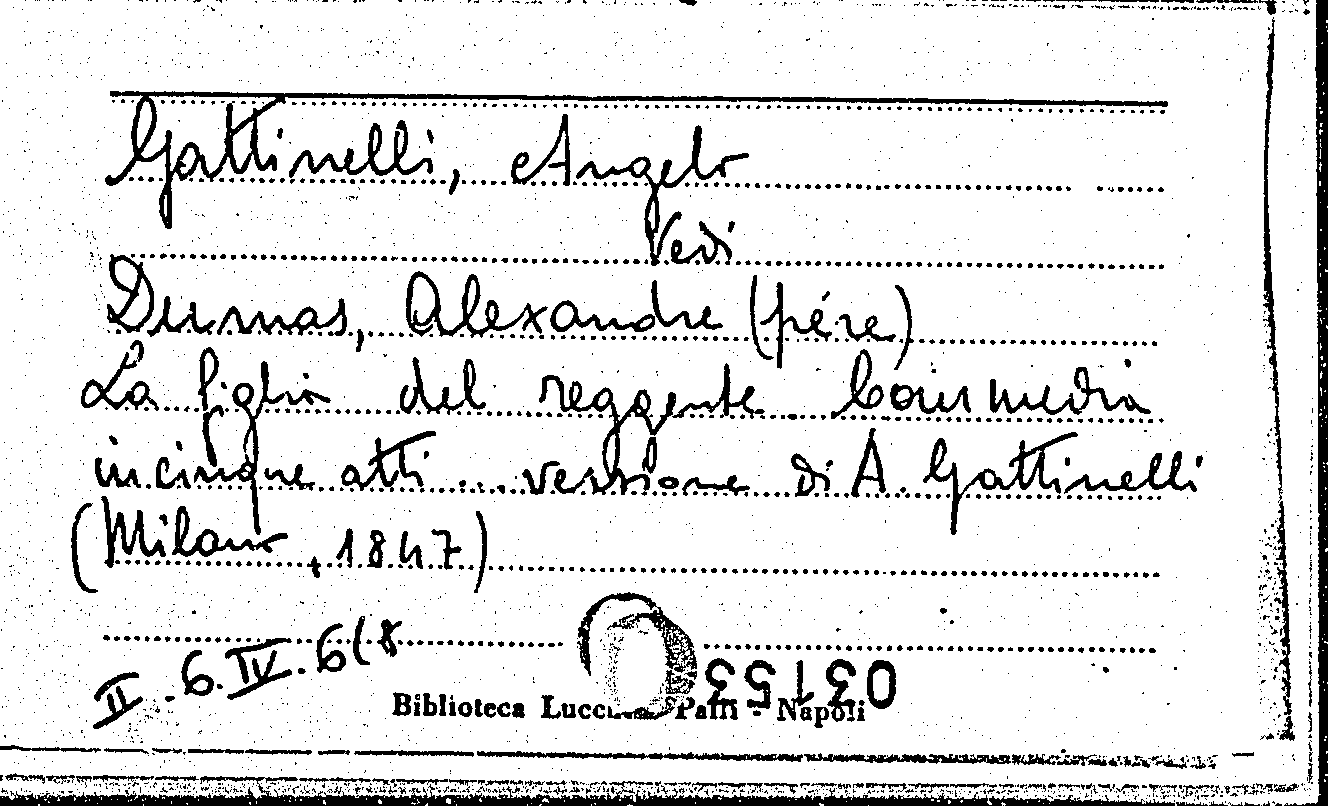 Gattinelli, Angelo
Vedi
Dumas, Alexandre (pére)
La figlia del reggente. Commedia
in cinque atti ... versione di A. Gattinelli
(Milano, 1847)
II . 6. IV. 6(8
Biblioteca Lucchesi Palli - Napoli